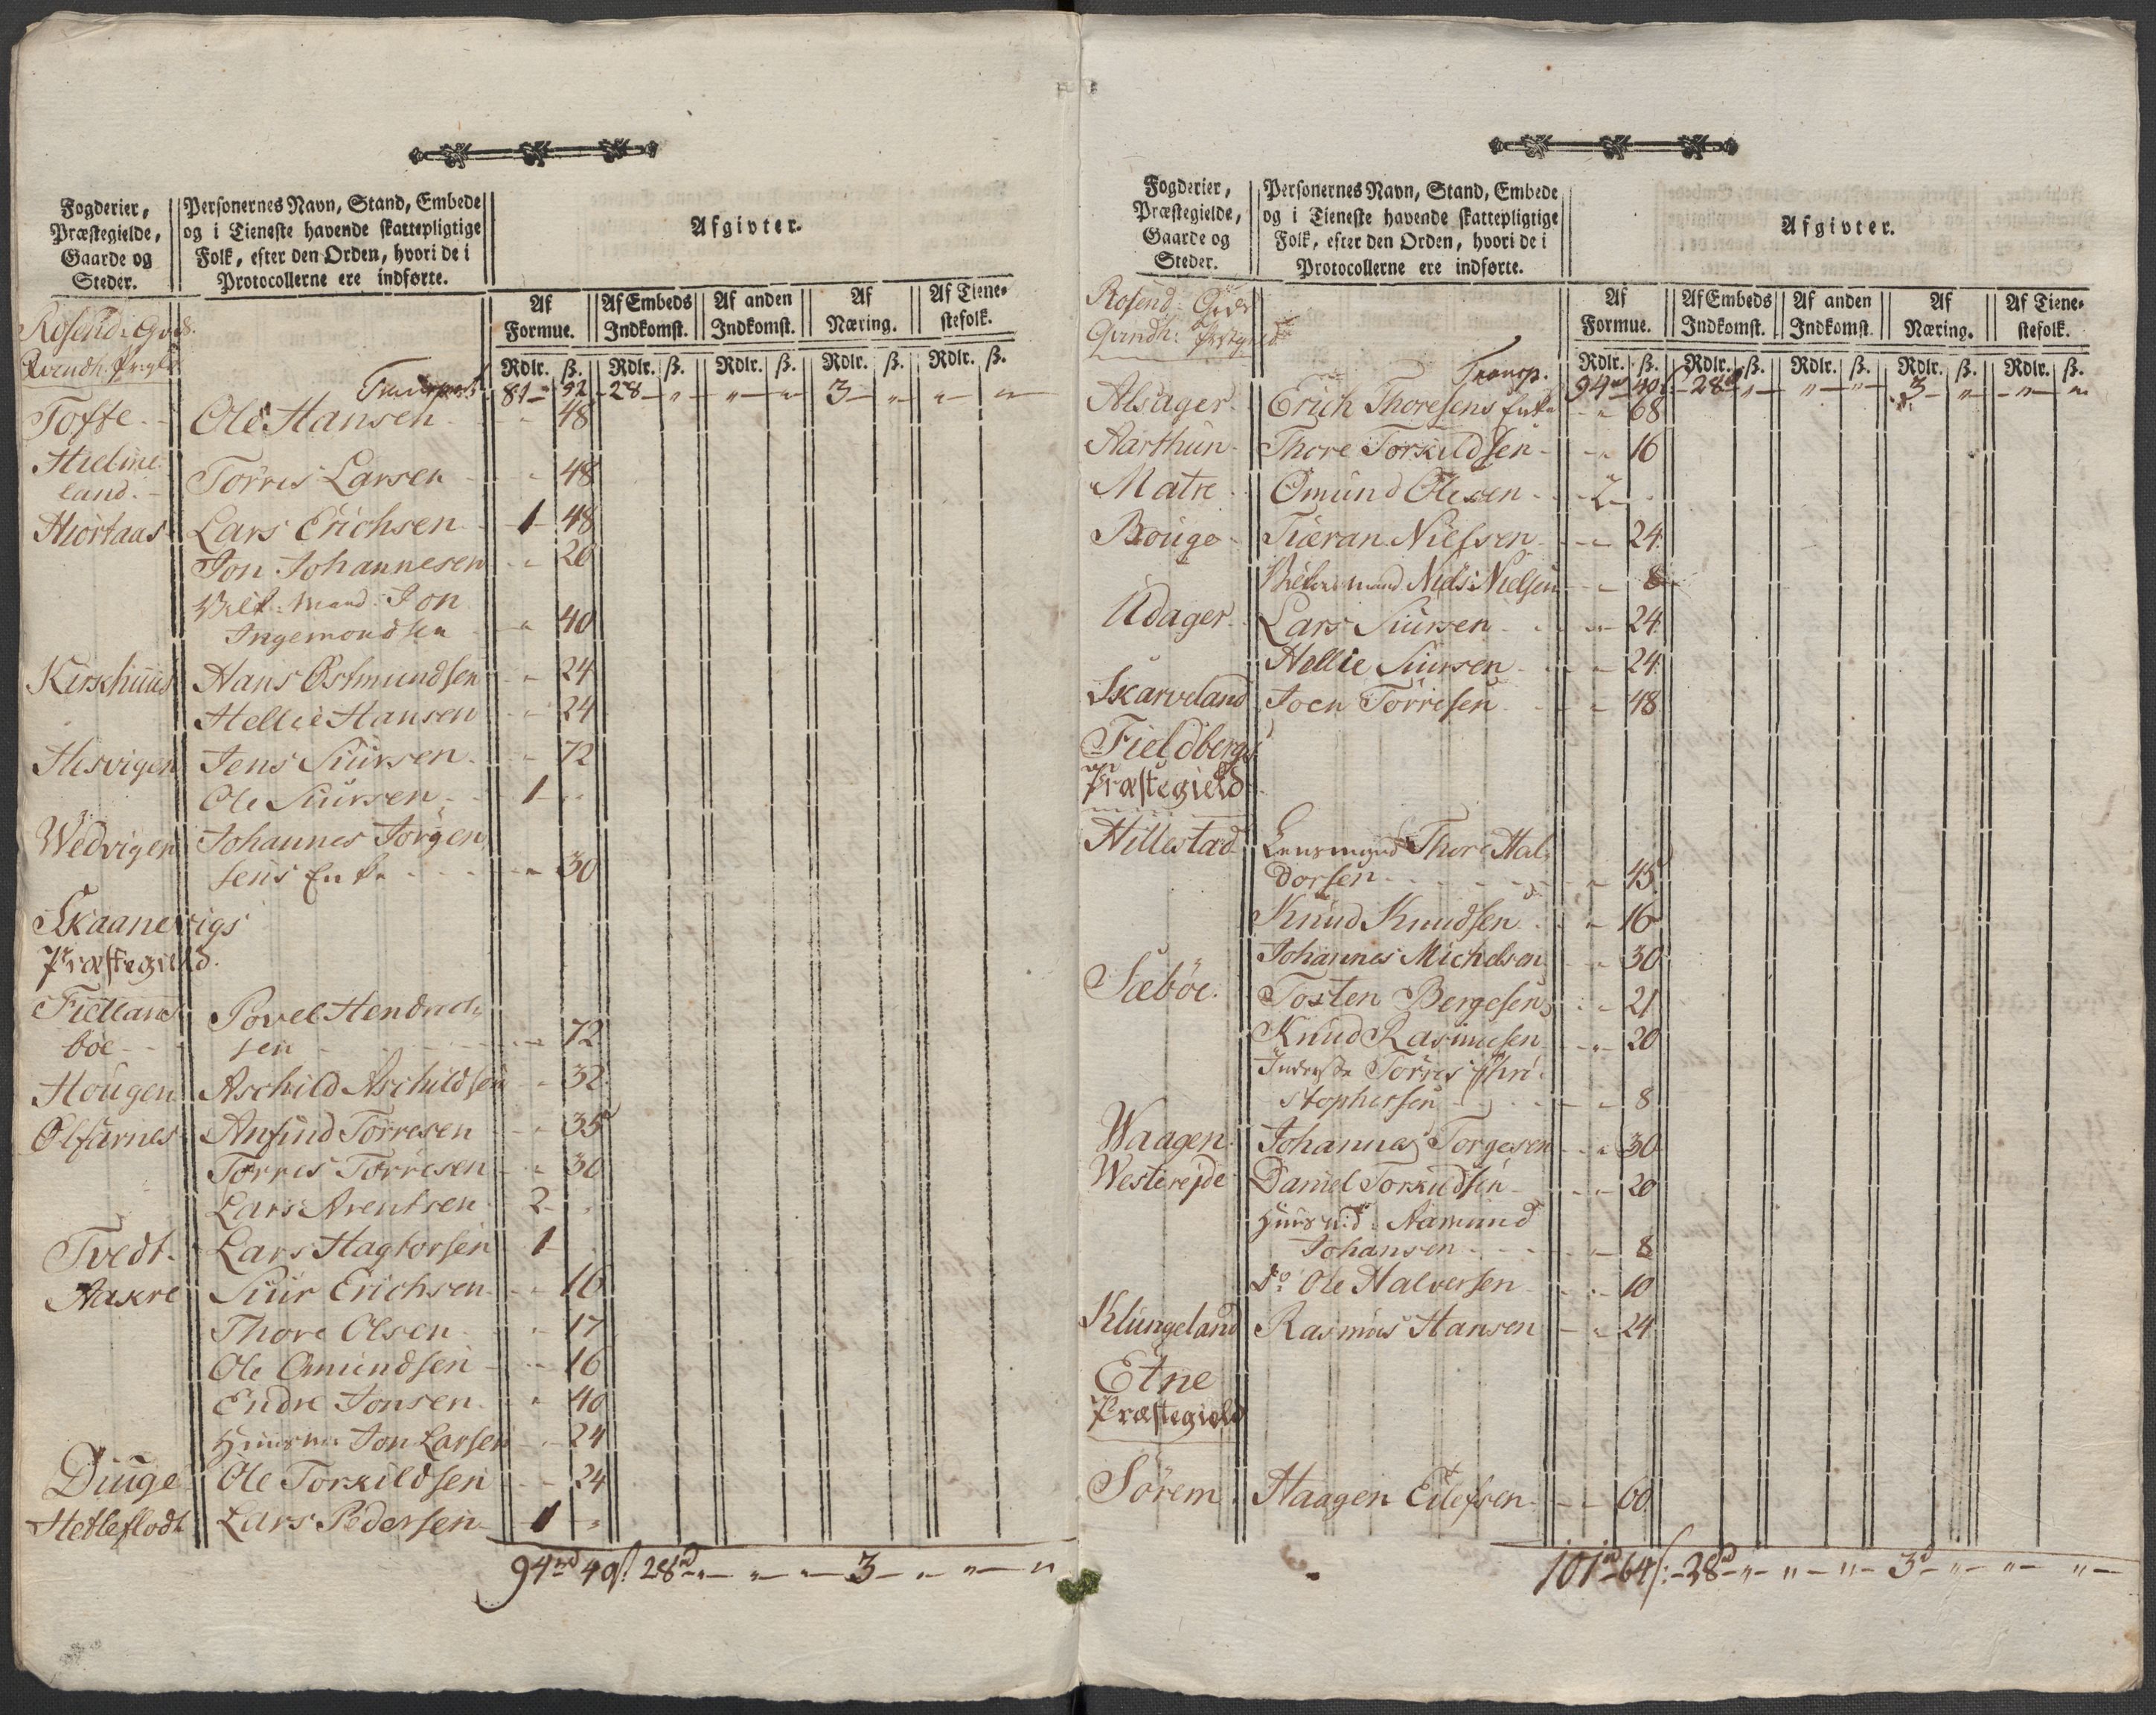 Fogderier, Præstegielde, Gaarde og Steder.
Personernes Navn, Stand, Embede og i Tieneste havende skattepligtige Folk, efter den Orden, hvori de i Protocollerne ere indførte.
Afgivter.
Af Formue. Af Embeds Indkomst. Af anden Indkomst. Af Næring. Af Tienestefolk.
Rdlr. ß. Rdlr. ß. Rdlr. ß. Rdlr. ß. Rdlr. ß.
Rosend: Gods.
Qvindh: Prgld
Transport 81 - 92 - 28 - „ - „ - „ - 3 - „ - „ - „
Tofte - Ole Hansen - 48
Hielme
land. - Törres Larsen - 48
Hiortaas Lars Erichsen - 1 - 48
Jon Johannesen - 20
Jon
Ingemondsen - 40
Kirkhuus Hans Östmundsen - 24
Hellie Hansen - 24
Hisvigen Jens Siursen - 72
Ole Siursen - 1 -
Wedvigen Johannes Jörgen
sens Enke - - - 30
Skaanevigs
Præstegield.
Fietland
böe - - Povel Hendrich
sen - 72
Hougen Aschild Aschildsen - 32
Ølfarnes Anfind Törresen - 35
Torres Törresen - 30
Lars Arentsen 2 -
Tvedt - Lars Hagtorsen 1 -
Aakre Siur Erichsen - 16
Thore Olsen - 17
Ole Omundsen - 16
Endre Jonsen - 40
Huusm: Jon Larsen - 24
Diuge Ole Torkildsen - 24
Hetleflodt Lars Pedersen 1 -
94 rd 40 ß. 28 rd - „ - „ - „ - 3 - „ - „ - „
Fogderier, Præstegielde, Gaarde og Steder.
Personernes Navn, Stand, Embede og i Tieneste havende skattepligtige Folk, efter den Orden, hvori de i Protocollerne ere indførte.
Afgivter.
Af Formue. Af Embeds Indkomst. Af anden Indkomst. Af Næring. Af Tienestefolk.
Rdlr. ß. Rdlr. ß. Rdlr. ß. Rdlr. ß. Rdlr. ß.
Rosend: Gods
Qvindh: Prstgield
Transp. 94 rd 40 ß - 28 rd „ - „ - „ - 3 - „ - „ - „
Alsager Erich Thoresens Enke - 68
Aarthun Thore Torkildsen - 16
Matre Omund Olesen - 2 -
Bouge - Tiæran Nielsen - 24
Niels Nielsen - 8
Udager Lars Siursen - 24
Hellie Siursen - 24
Skarveland Joen Törresen - 48
Fieldbergs
Præstegield
Hillestad Lensmand Thore Hal
dorsen - 45
Knud Knudsen - 16
Johannes Michelsen - 30
Sæböe. Tosten Bergesen - 21
Knud Rasmusen - 20
Inderste Törres Chri
stophersen - 8
Waagen Johannes Torgesen - 30
Westerejde Daniel Torkildsen - 20
Huusmd: Aamund
Johansen - 8
do Ole Halversen - 10
Klungeland Rasmus Hansen - 24
Etne
Præstegield
Sörem Haagen Eilefsen - 60
101 rd 64 ß: - 28 rd - „ - „ - „ - 3 d - „ - „ - „